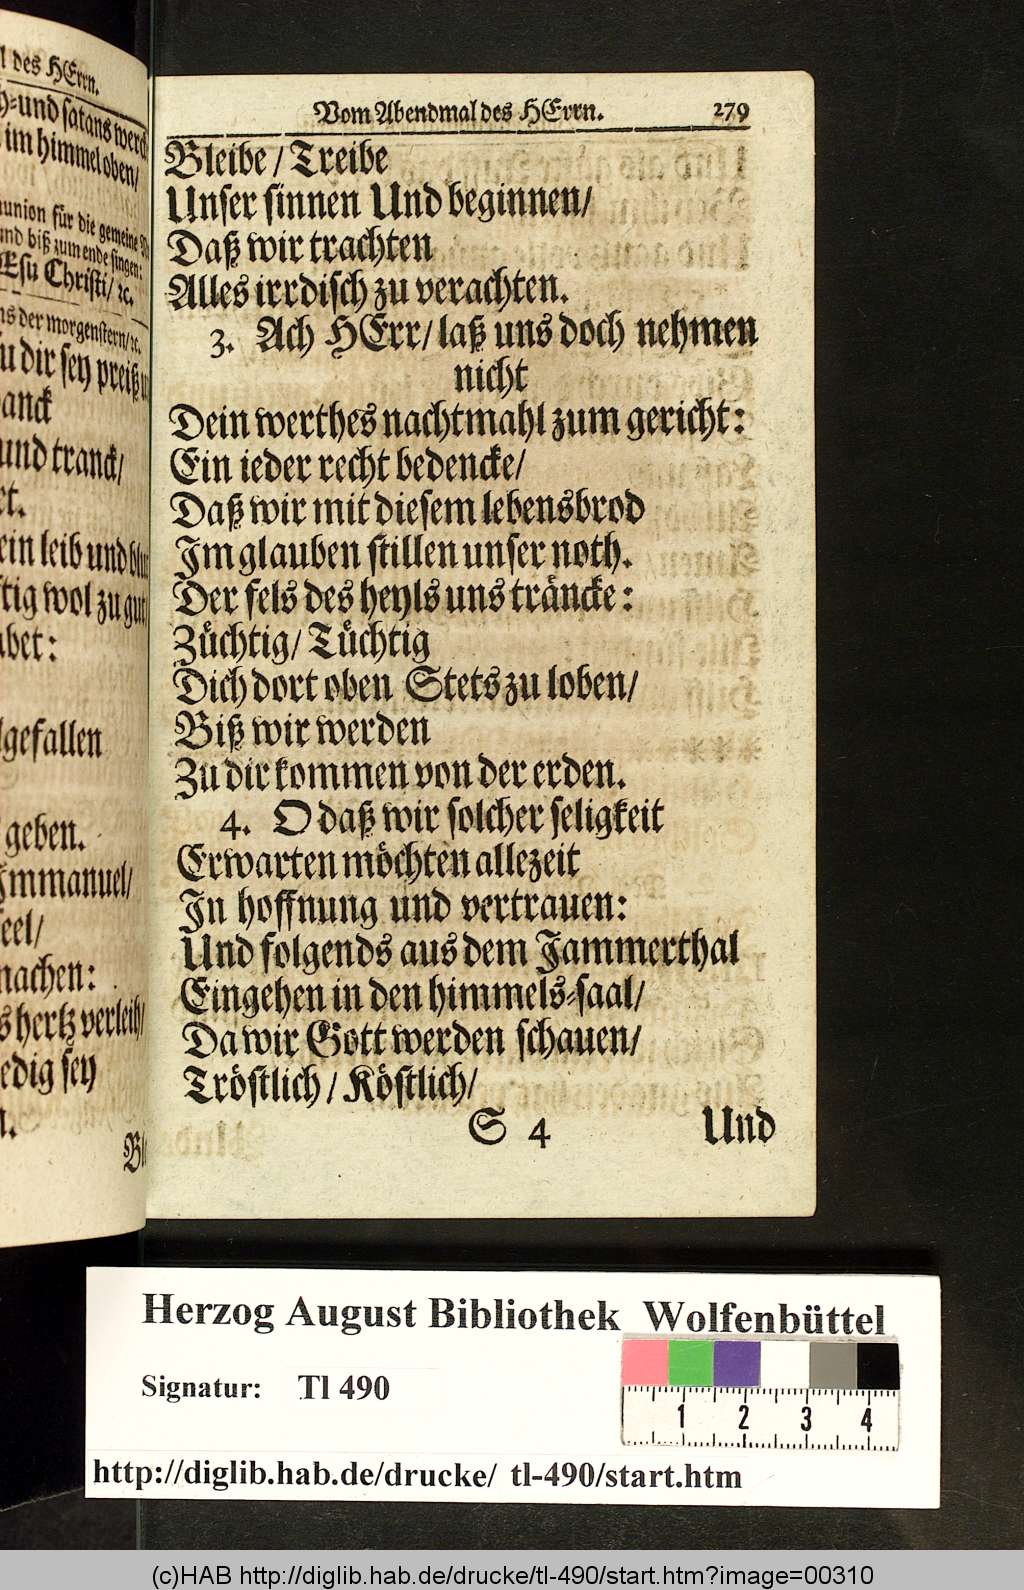 l des HErrn.
und satans werd
im himmel oben/
union für die gemeine
und biß zum ende singen:
Esu Christi/ ꝛc.
ns der morgenstern/ ꝛc.
u dir sey preiß
anck
und tranck/
et.
ein leib und blu
tig wol zu gut
abet:
gefallen
geben.
Immanuel/
eel/
nachen:
s hertz verleih/
edig sey
n.
Bl
Vom Abendmal des HErrn. 279
Bleibe / Treibe
Unser sinnen Und beginnen/
Daß wir trachten
Alles irrdisch zu verachten.
3. Ach HErr/ laß uns doch nehmen
nicht
Dein werthes nachtmahl zum gericht:
Ein ieder recht bedencke/
Daß wir mit diesem lebensbrod
Im glauben stillen unser noth.
Der fels des heyls uns träncke:
Züchtig/ Tüchtig
Dich dort oben Stets zu loben/
Biß wir werden
Zu dir kommen von der erden.
4. O daß wir solcher seligkeit
Erwarten möchten allezeit
In hoffnung und vertrauen:
Und folgends aus dem Jammerthal
Eingehen in den himmels-saal/
Da wir Gott werden schauen/
Tröstlich / Köstlich/
S 4 Und
Herzog August Bibliothek Wolfenbüttel
Signatur: Tl 490
1 2 3 4
http://diglib.hab.de/drucke/ tl-490/start.htm
(c)HAB http://diglib.hab.de/drucke/tl-490/start.htm?image=00310